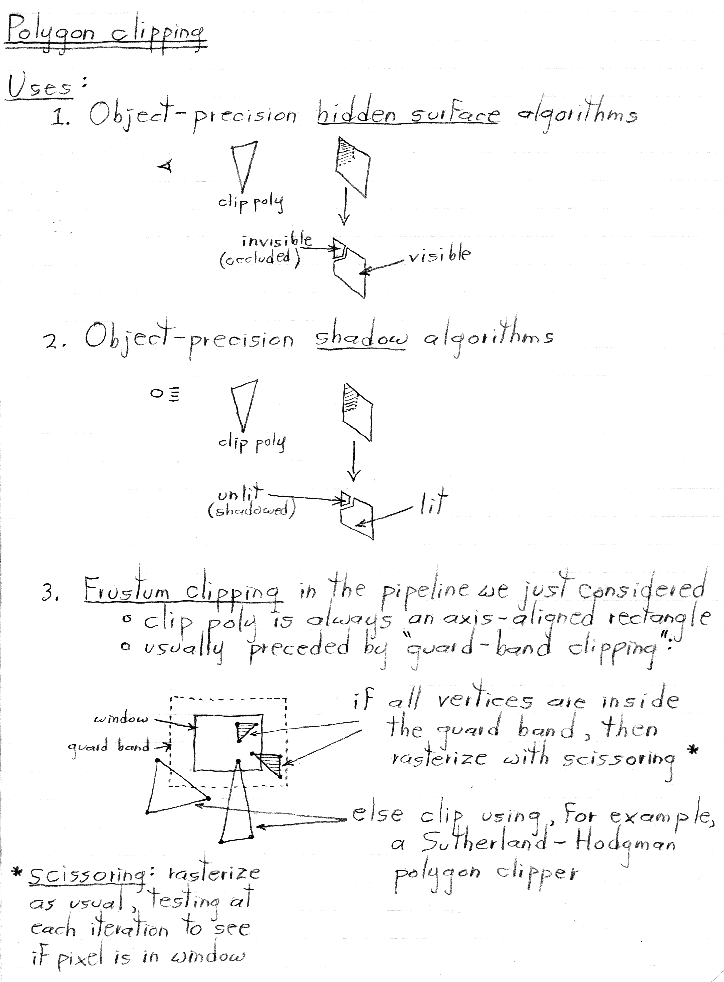 Polygon clipping
Uses:
1. Object-precision hidden surface algorithms
clip poly
invisible
(occluded)
visible
2. Object-precision shadow algorithms
clip poly
unlit
(shadowed)
lit
3. Frustum clipping in the pipeline we just considered
o clip poly is always an axis-aligned rectangle
o usually preceded by "guard-band clipping":
window
guard band
if all vertices are inside
the guard band, then
rasterize with scissoring *
else clip using, for example,
a Sutherland-Hodgman
polygon clipper
* scissoring: rasterize
as usual, testing at
each iteration to see
if pixel is in window